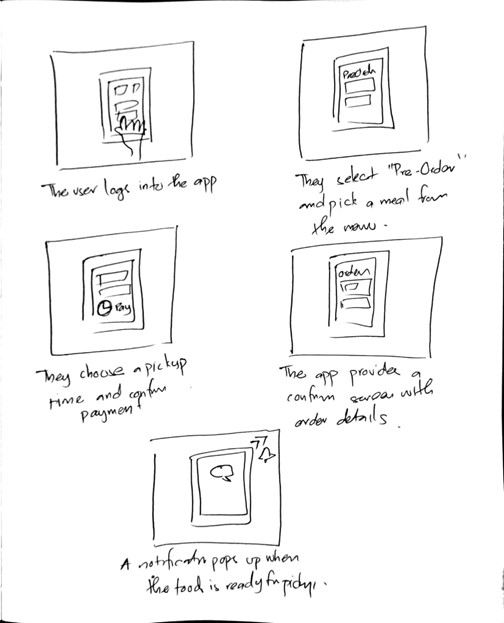 The user logs into the app
Preorder
They select "Pre-Order"
and pick a meal from
the menu.
Pay
They choose a pickup
time and confirm
payment
order
The app provides a
confirm screen with
order details.
A notification pops up when
the food is ready for pickup.